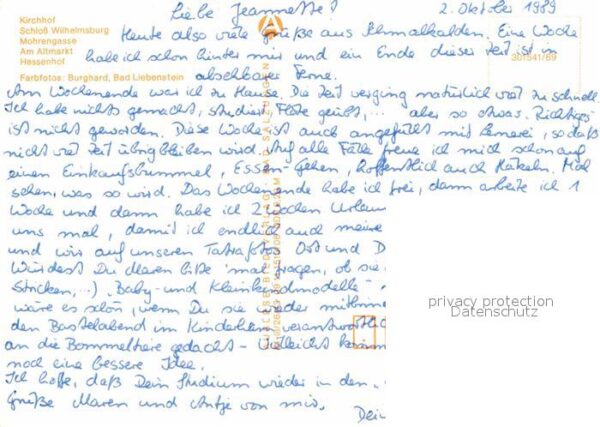 Liebe Jeannette! 2. Oktober 1989
Kirchhof
Schloß Wilhelmsburg
Mohrengasse
Am Altmarkt
Hessenhof
Farbfotos: Burghard, Bad Liebenstein
301541/89
Heute also viele Grüße aus Schmalkalden. Eine Woche
habe ich schon hinter mir und ein Ende dieser Zeit ist in
absehbarer Ferne.
Am Wochenende war ich zu Hause. Die Zeit verging natürlich viel zu schnell.
Ich habe nichts gemacht, studiert, Flöte geübt,... aber so etwas Richtiges
ist nicht geworden. Diese Woche ist auch angefüllt mit Lernerei, so daß
nicht viel Zeit übrigbleiben wird. Auf alle Fälle freue ich mich schon auf
einen Einkaufsbummel, Essen-Gehen, hoffentlich auch Häkeln. Mal
sehen, was so wird. Das Wochenende habe ich frei, dann arbeite ich 1
Woche und dann habe ich 2 Wochen Urlaub
uns mal, damit ich endlich auch meine
und wir auf unseren Tatrafotos Ost und D
Würdest Du Maren bitte mal fragen, ob sie
Stricken,...) Baby- und Kleinkindmodelle
wäre es schön, wenn Du sie wieder mitbring
den Bastelabend im Kinderheim verantwortlich
an die Bommeltiere gedacht - vielleicht
noch eine bessere Idee.
Ich hoffe, daß Dein Studium wieder in den
Grüße Maren und Antje von mir.
Dein
privacy protection
Datenschutz